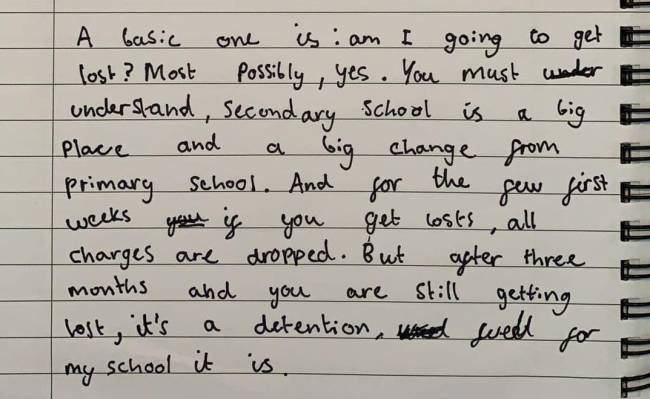 A basic one is : am I going to get
lost? Most possibly, yes. You must under
understand, secondary school is a big
place and a big change from
primary school. And for the few first
weeks you if you get losts, all
charges are dropped. But after three
months and you are still getting
lost, it's a detention, well for
my school it is.